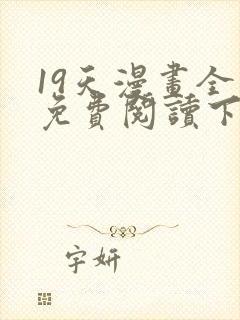 19天漫畫全
免費閱讀下
字妍